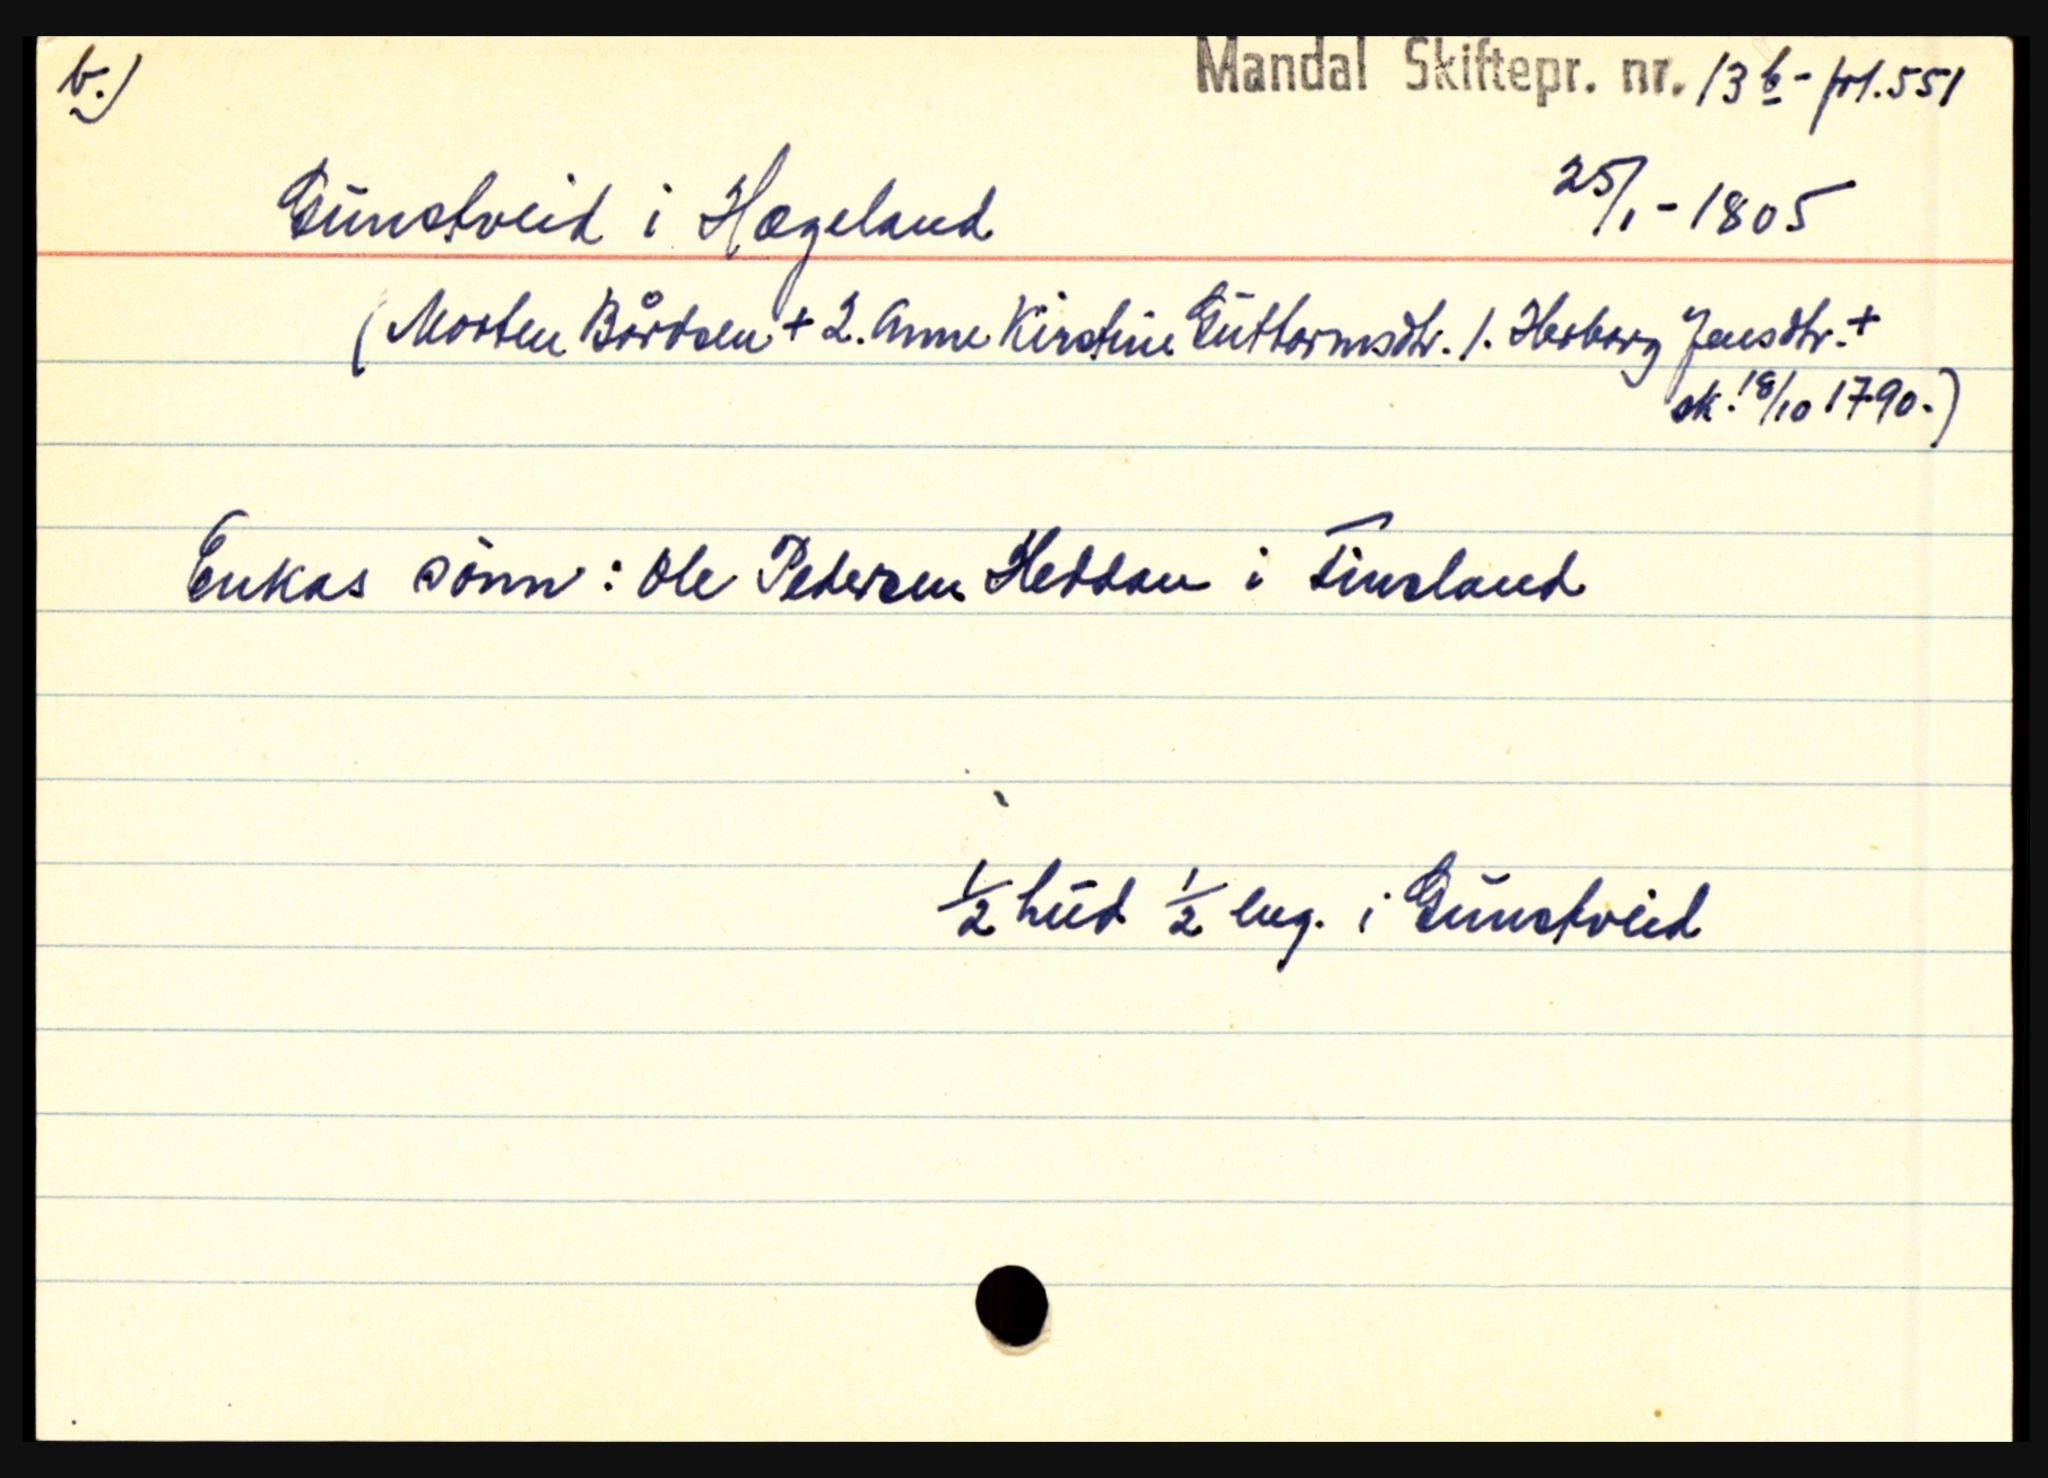 b.) Mandal Skiftepr. nr. 13b - fol. 551
Gunstveid i Hægeland 25/1 - 1805
(Morten Bårdsen + 2. Anne Kirstine Guttormsdtr. 1. Herborg Jensdtr. +
sk. 18/10 1790.)
Enkas sønn: Ole Pedersen Heddan i Finsland
1/2 hud 1/2 eng. i Gunstveid